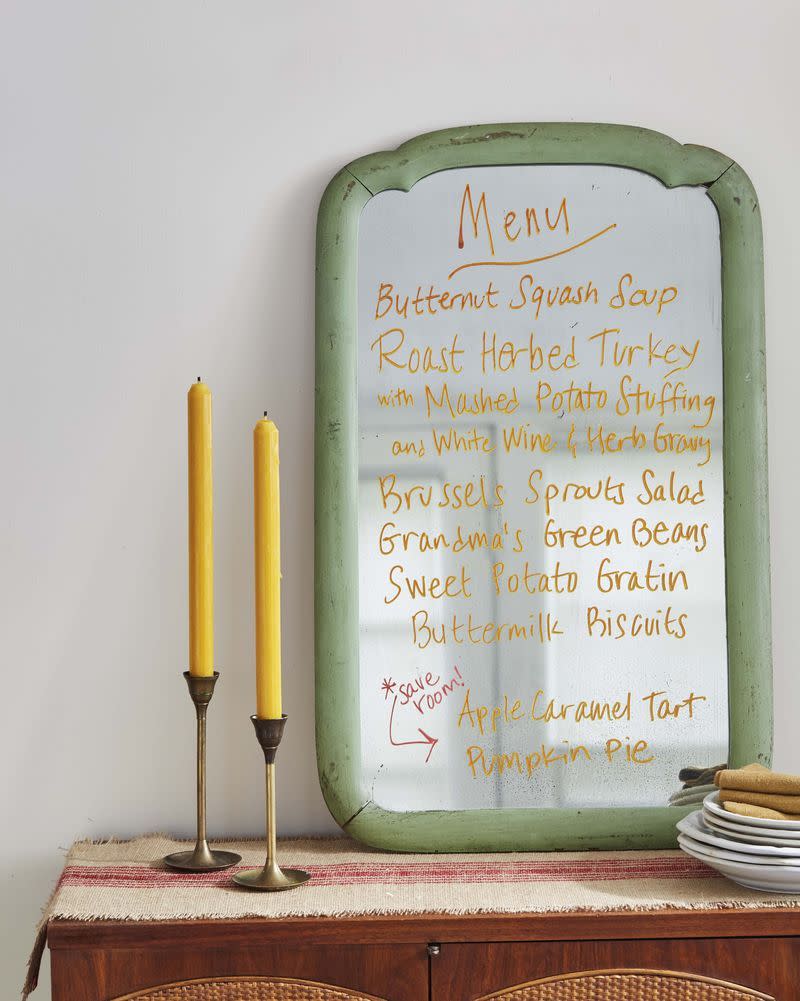 Menu
Butternut Squash Soup
Roast Herbed Turkey
with Mashed Potato Stuffing
and White Wine & Herb Gravy
Brussels Sprouts Salad
Grandma's Green Beans
Sweet Potato Gratin
Buttermilk Biscuits
*save room!
Apple Caramel Tart
Pumpkin Pie